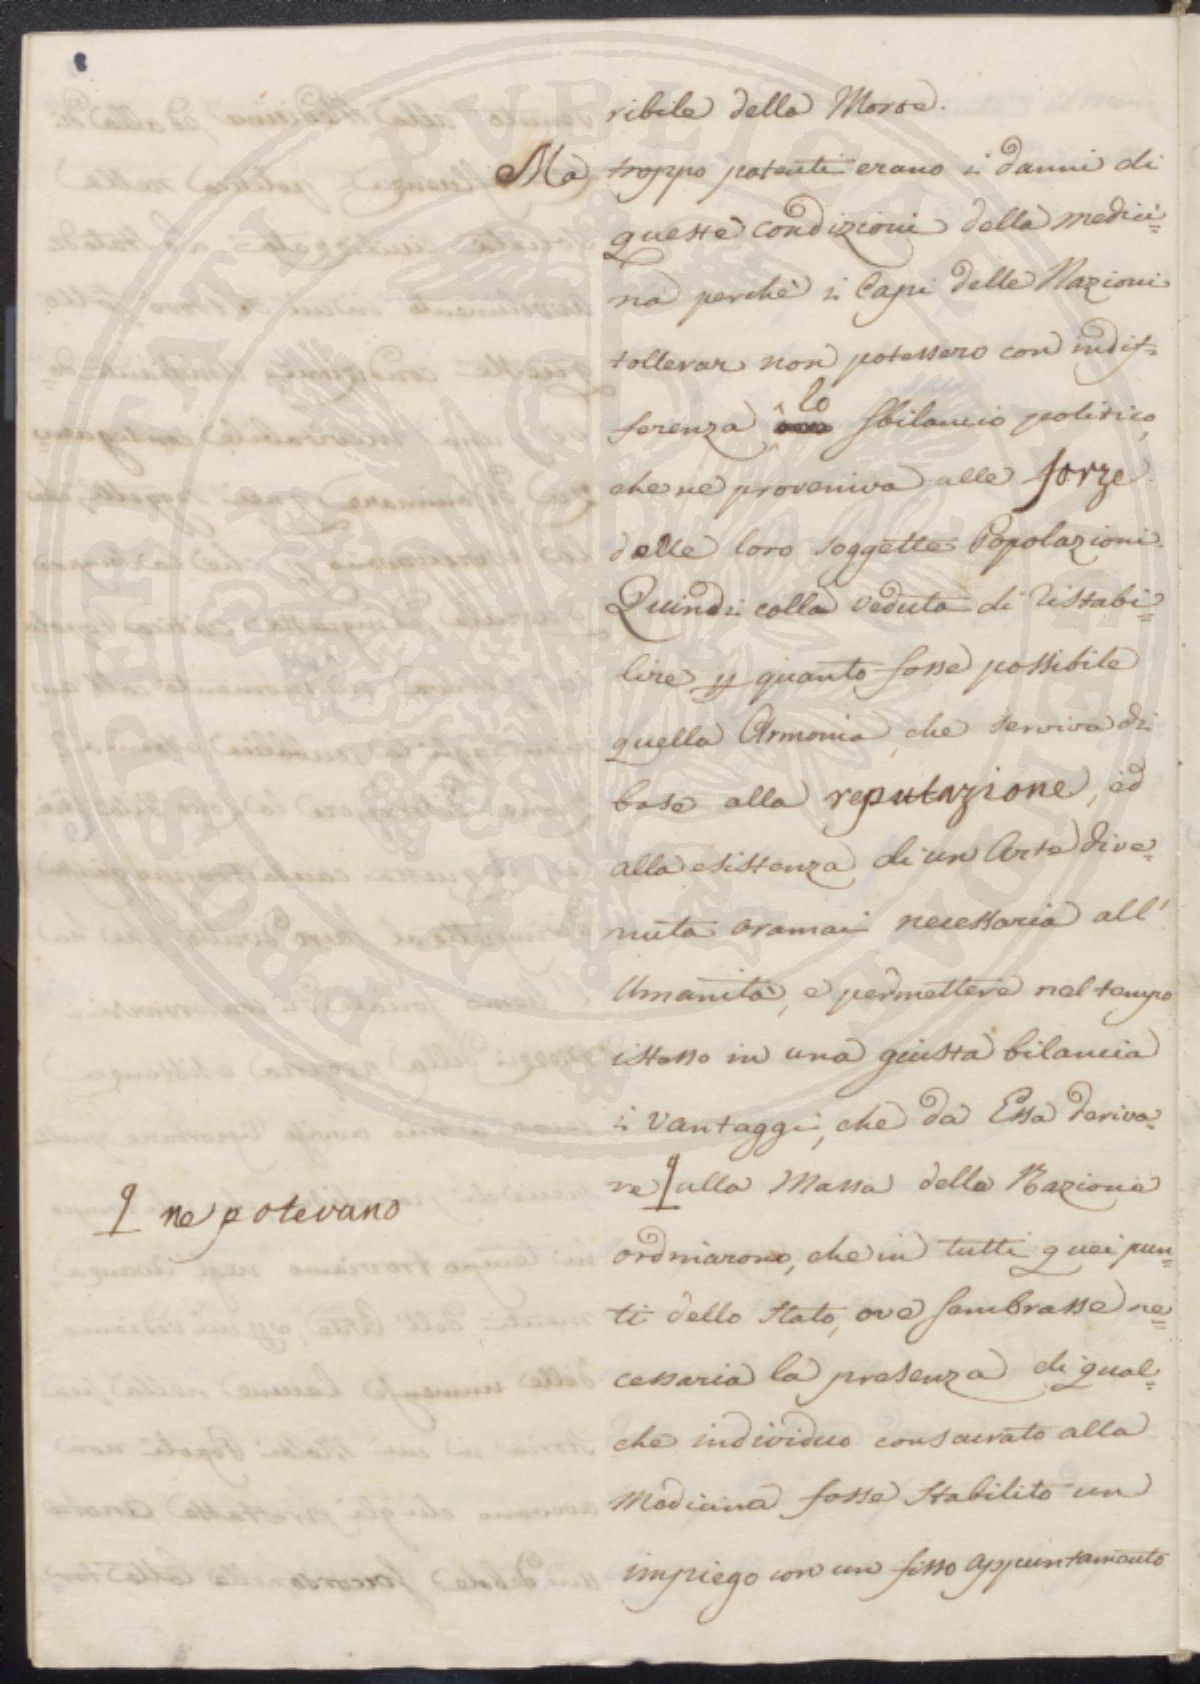 ribile della Morte.
Ma troppo potenti erano i danni di
queste condizioni della medici=
na perchè i Capi delle Nazioni
tollerar non potessero con indif=
ferenza lo sbilancio politico,
che ne proveniva alle forze
delle loro soggette Popolazioni.
Quindi colla veduta di ristabi=
lire p quanto fosse possibile
quella Armonia, che serviva di
base alla reputazione, ed
alla esistenza di un Arte dive=
nuta oramai necessaria all'
Umanità, e permettere nel tempo
istesso in una giusta bilancia
i vantaggi, che da Essa deriva=
re sulla Massa della Nazione
ne potevano
ordinarono, che in tutti quei pun=
ti dello Stato, ove sembrasse ne=
cessaria la presenza di qual=
che individuo consacrato alla
Medicina fosse stabilito un
impiego con un fisso appuntamento
PROSPERITATI PUBLICAE